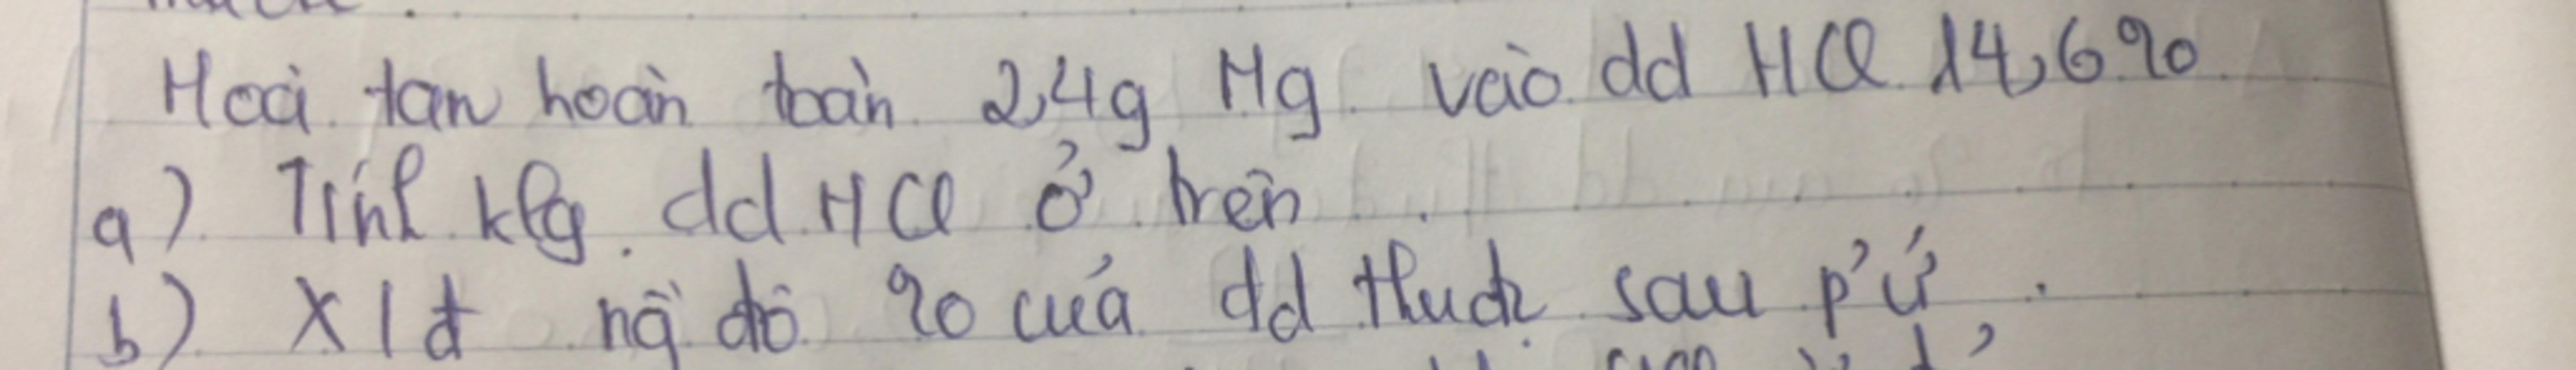 Hoà tan hoàn toàn 2,4g Mg vào dd HCl 14,6%
a) Tính klg dd HCl ở trên
b) X/đ ng̀ độ % của dd thu đc sau p'ứ.